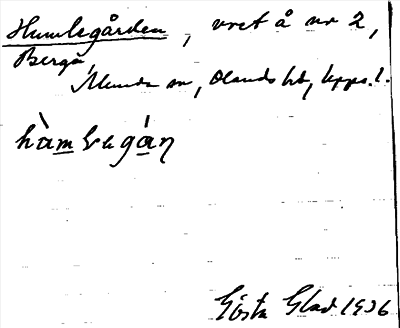 Humlegården, vret å nr 2,
Berga,
Munda sn, Olands hd, Upps. l.
Gösta Glad 1936